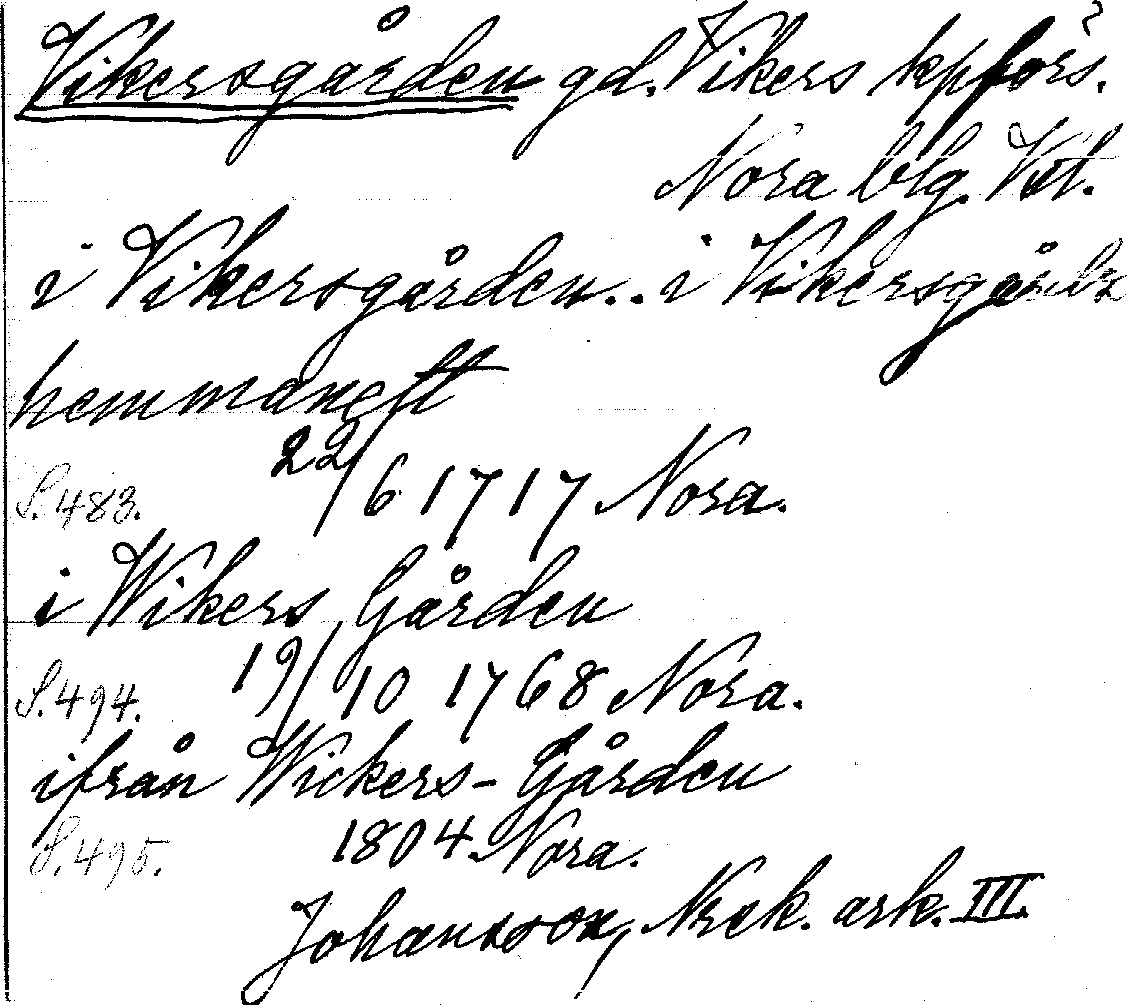 Vikersgården gd. Vikers kpförs.
Nora blg. Vstl.
i Vikersgården.. i Vikersgårdz
hemmaneftt
22/6 1717 Nora.
S. 483.
i Wikers Gården
S. 494. 19/10 1768 Nora.
ifrån Wickers-Gården
S. 495. 1804. Nora.
Johansson, Nrek. ark. III.